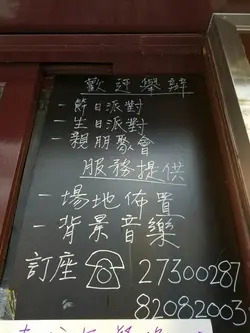 歡迎舉辦
一節日派對
一生日派對
一親朋聚會
服務提供
一場地佈置
一背景音樂
訂座☎27300287
82082003